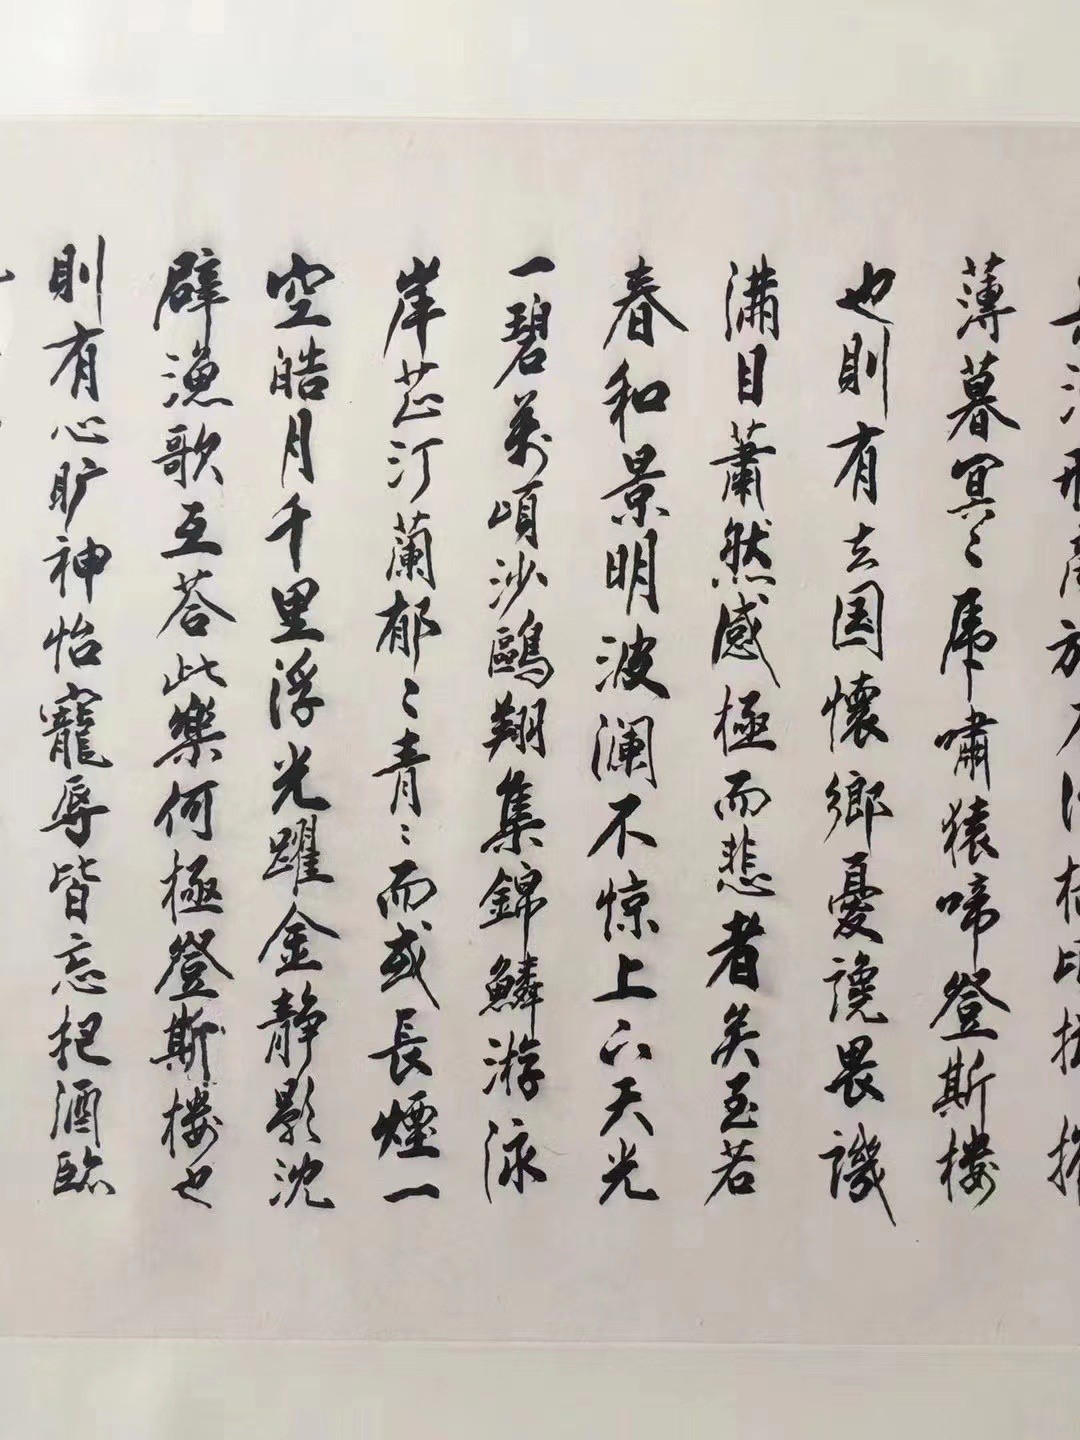 薄暮冥〻虎嘯猿啼登斯樓
也則有去国懷鄉憂讒畏譏
滿目蕭然感極而悲者矣至若
春和景明波澜不惊上下天光
一碧萬頃沙鷗翔集錦鱗游泳
岸芷汀蘭郁〻青〻而或長煙一
空皓月千里浮光躍金静影沈
璧漁歌互荅此樂何極登斯樓也
則有心旷神怡寵辱皆忘把酒臨